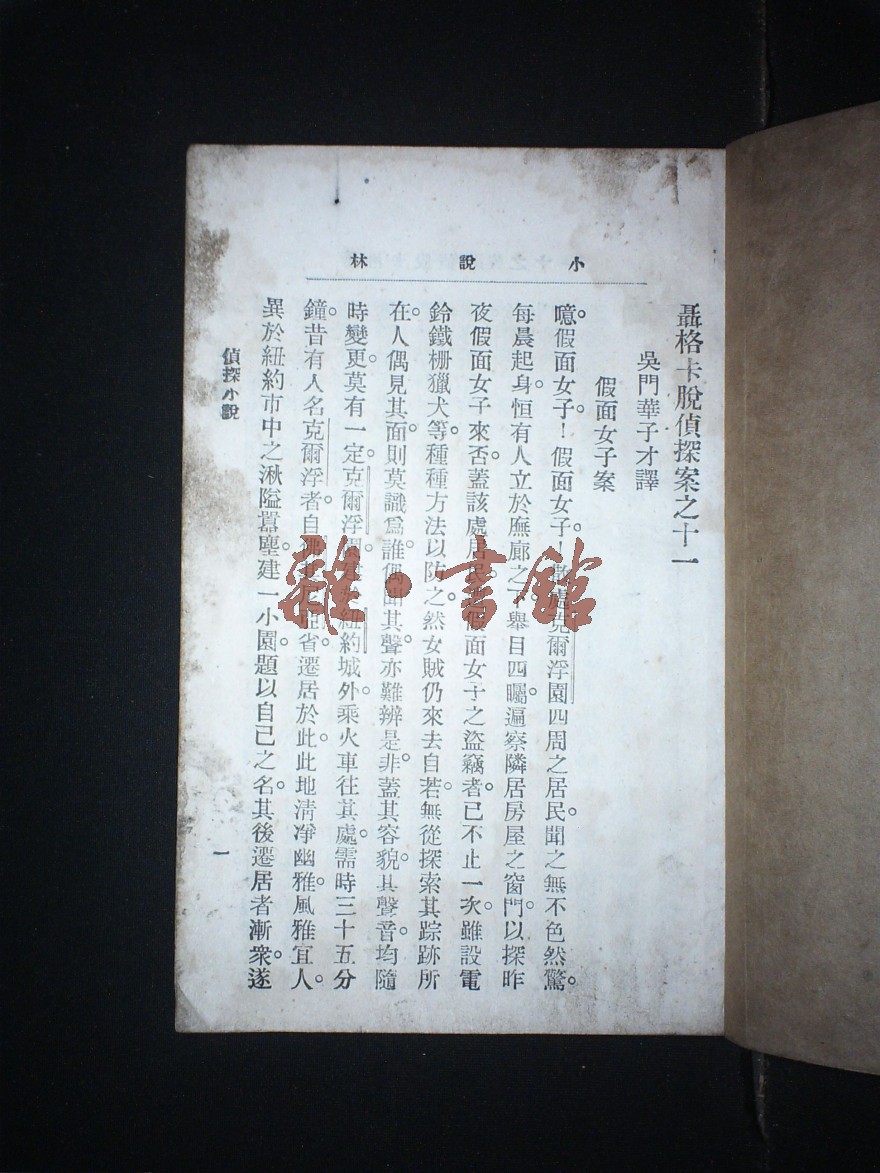 小說林
聶格卡脫偵探案之十一
吳門華子才譯
假面女子案
噫。假面女子！假面女子！克爾浮園四周之居民。聞之無不色然驚。
每晨起身。恒有人立於廡廊之下。舉目四矚。遍察隣居房屋之窗門。以探昨
夜假面女子來否。蓋該處居民。假面女子之盜竊者。已不止一次。雖設電
鈴鐵柵獵犬等。種種方法以防之。然女賊仍來去自若。無從探索其踪跡所
在。人偶見其面。則莫識爲誰。偶聞其聲。亦難辨是非。蓋其容貌。其聲音。均隨
時變更。莫有一定。克爾浮園建於紐約城外。乘火車往其處。需時三十五分
鐘。昔有人名克爾浮者。自省遷居於此。此地清凈幽雅。風雅宜人。
異於紐約市中之湫隘囂塵。建一小園。題以自己之名。其後遷居者漸衆。遂
偵探小說
一
雜·書館